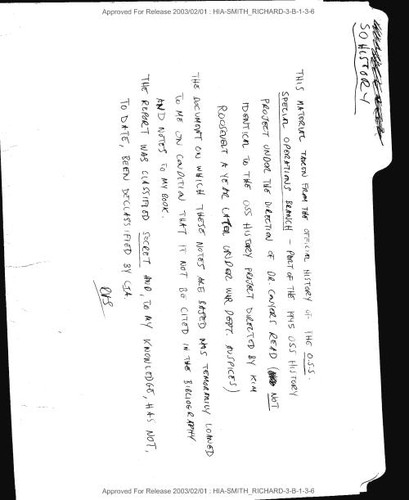 Approved For Release 2003/02/01 : HIA-SMITH_RICHARD-3-B-1-3-6
SO HISTORY
THIS MATERIAL TAKEN FROM THE OFFICIAL HISTORY OF THE O.S.S.
SPECIAL OPERATIONS BRANCH – PART OF THE 1945 OSS HISTORY
PROJECT UNDER THE DIRECTION OF DR. CONYERS READ (NOT
IDENTICAL TO THE OSS HISTORY PROJECT DIRECTED BY KIM
ROOSEVELT A YEAR LATER UNDER WAR DEPT. AUSPICES)
THE DOCUMENT ON WHICH THESE NOTES ARE BASED WAS TEMPORARILY LOANED
TO ME ON CONDITION THAT IT NOT BE CITED IN THE BIBLIOGRAPHY
AND NOTES TO MY BOOK.
THE REPORT WAS CLASSIFIED SECRET AND, TO MY KNOWLEDGE, HAS NOT,
TO DATE, BEEN DECLASSIFIED BY CIA
RHS
Approved For Release 2003/02/01 : HIA-SMITH_RICHARD-3-B-1-3-6